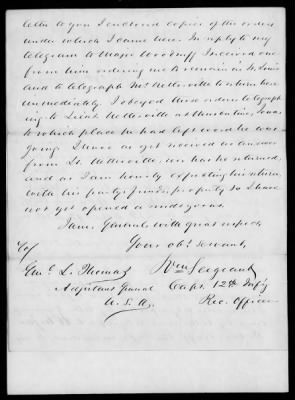 letter to you I enclosed copies of the orders
under which I came here. In reply to my
telegram to Major Woodruff I received one
from him ordering me to remain in St Louis
and to telegraph Netterville to return here
immediately. I obeyed these orders telegraph
ing to Lieut Netterville at Muscatine, Iowa
to which place he had left word he was
going. I have as yet received no answer
from Lt. Netterville, nor has he returned,
and as I am hourly expecting his return
with his party & property I have
not yet opened a rendezvous.
I am, General, with great respect
Your obt. servant,
Wm Sergeant
Genl. L. Thomas
Capt. 12th Inf'y
Adjutant General
Rec. Officer
U. S. A.